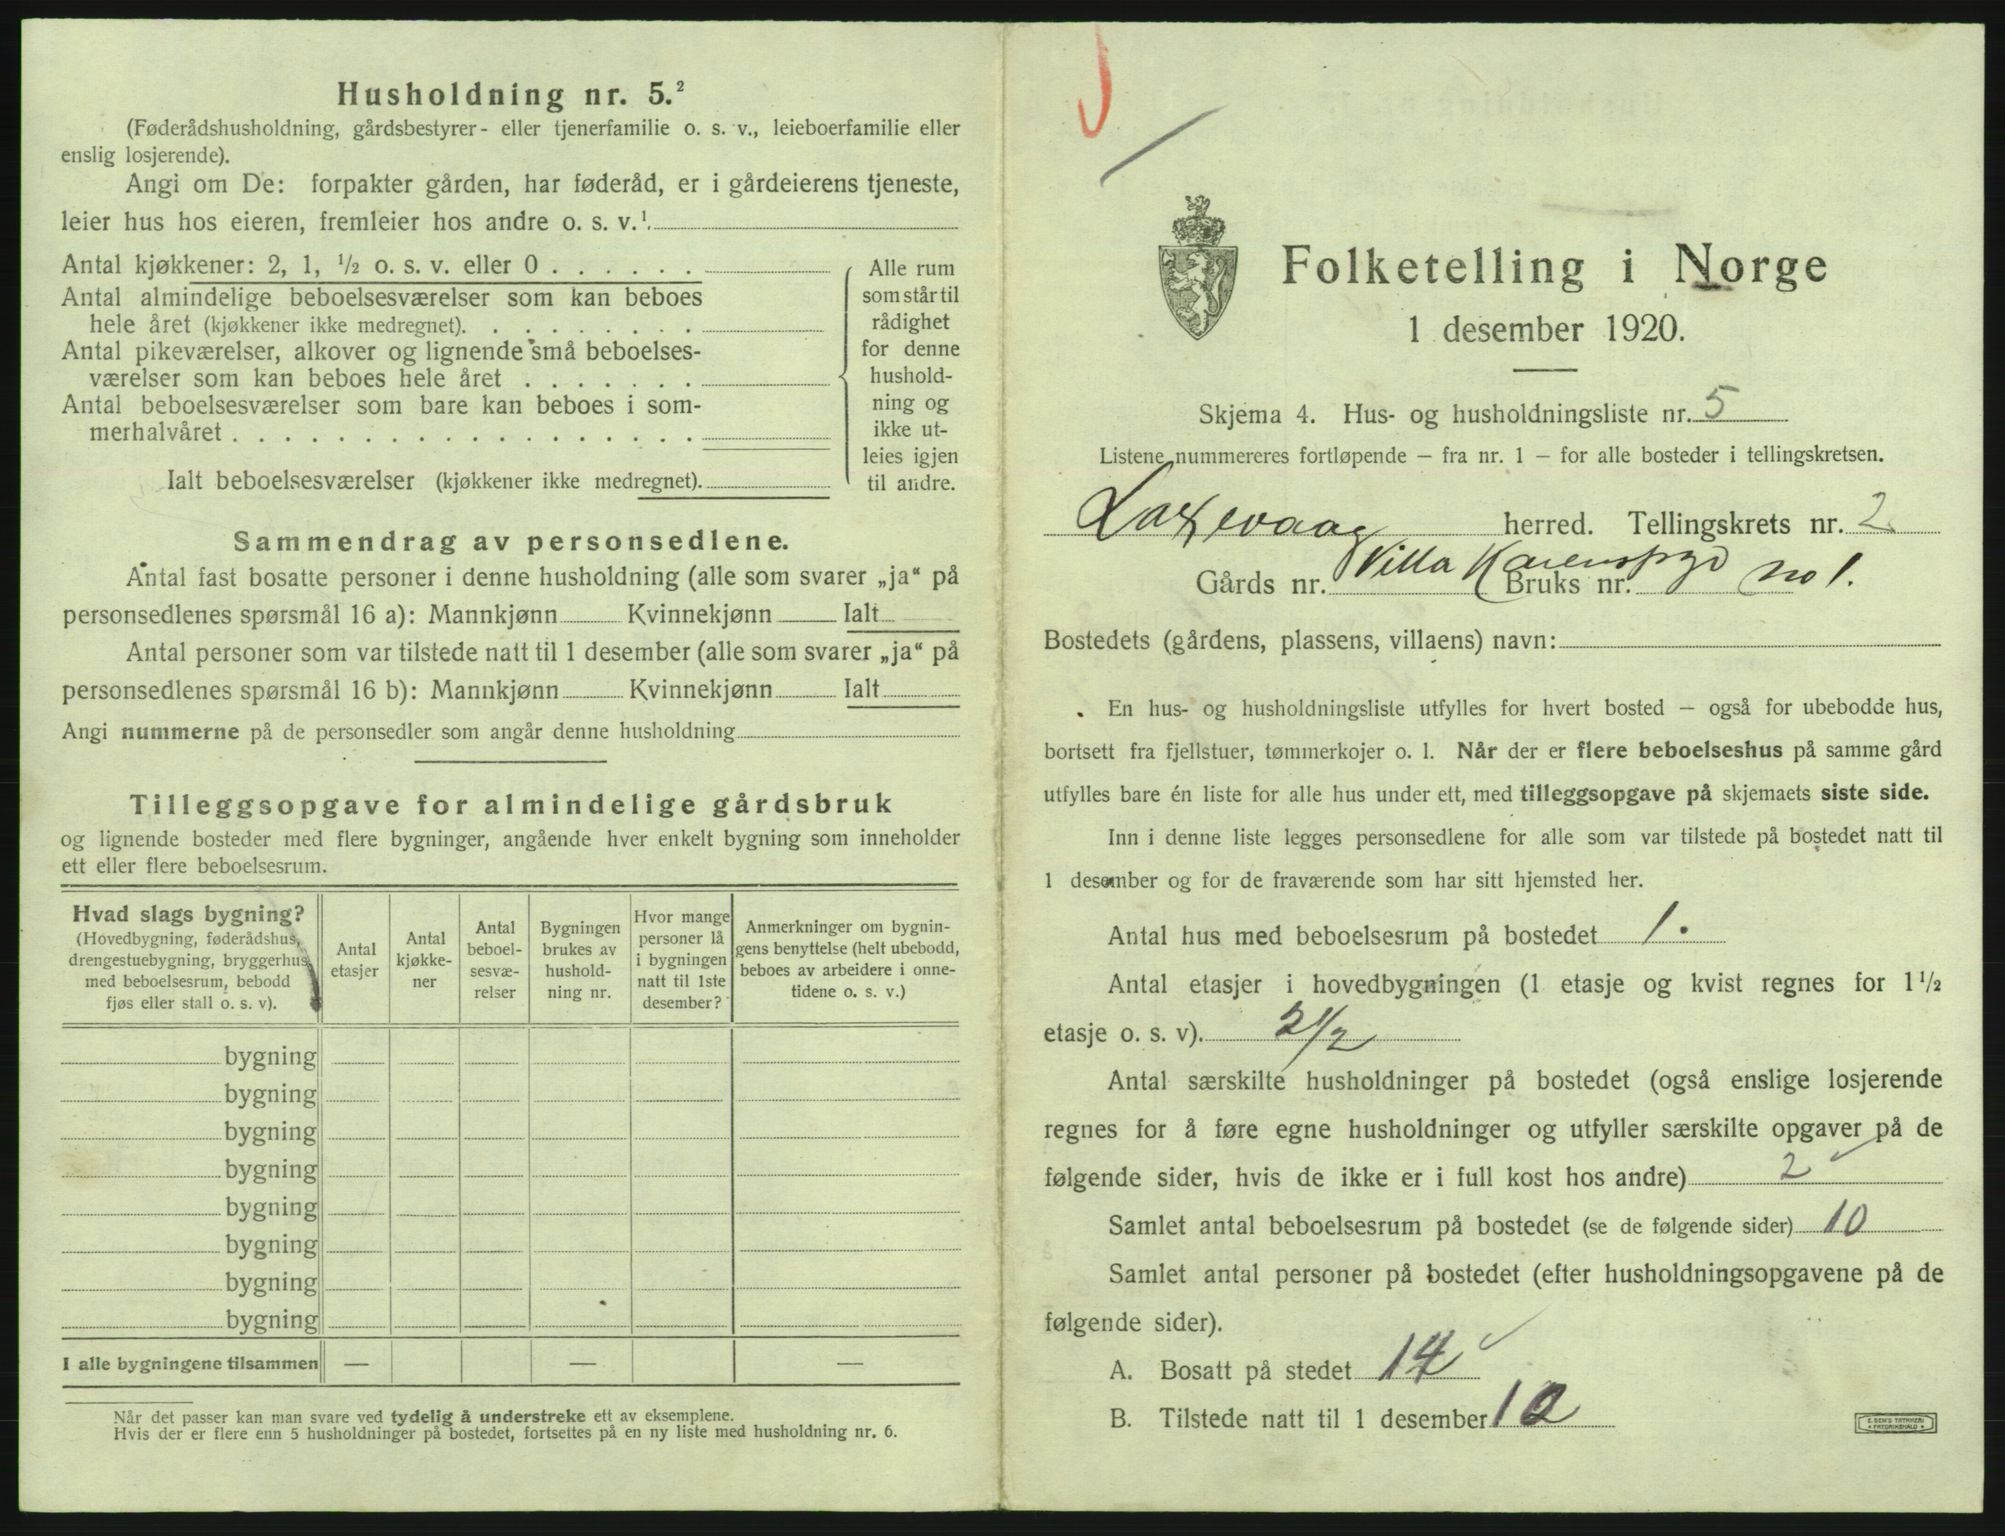 Husholdning nr. 5.²
(Føderådshusholdning, gårdsbestyrer- eller tjenerfamilie o. s. v., leieboerfamilie eller
enslig losjerende).
Angi om De: forpakter gården, har føderåd, er i gårdeierens tjeneste,
leier hus hos eieren, fremleier hos andre o. s. v.¹
Antal kjøkkener: 2, 1, ½ o. s. v. eller 0 . . . . . .
Antal almindelige beboelsesværelser som kan beboes
hele året (kjøkkener ikke medregnet). . . . . . . . .
Antal pikeværelser, alkover og lignende små beboelses-
værelser som kan beboes hele året . . . . . . .
Antal beboelsesværelser som bare kan beboes i som-
merhalvåret . . . . . . . . . . . . . . . . . .
Ialt beboelsesværelser (kjøkkener ikke medregnet).
Alle rum
som står til
rådighet
for denne
hushold-
ning og
ikke ut-
leies igjen
til andre.
Sammendrag av personsedlene.
Antal fast bosatte personer i denne husholdning (alle som svarer „ja“ på
personsedlenes spørsmål 16 a): Mannkjønn Kvinnekjønn Ialt
Antal personer som var tilstede natt til 1 desember (alle som svarer „ja“ på
personsedlenes spørsmål 16 b): Mannkjønn Kvinnekjønn Ialt
Angi nummerne på de personsedler som angår denne husholdning
Tilleggsopgave for almindelige gårdsbruk
og lignende bosteder med flere bygninger, angående hver enkelt bygning som inneholder
ett eller flere beboelsesrum.
Hvad slags bygning?
(Hovedbygning, føderådshus,
drengestuebygning, bryggerhus
med beboelsesrum, bebodd
fjøs eller stall o. s. v).
Antal
etasjer
Antal
kjøkke-
ner
Antal
beboel-
sesvæ-
relser
Bygningen
brukes av
hushold-
ning nr.
Hvor mange
personer lå
i bygningen
natt til 1ste
desember?
Anmerkninger om bygnin-
gens benyttelse (helt ubebodd,
beboes av arbeidere i onne-
tidene o. s. v.)
bygning
bygning
bygning
bygning
bygning
bygning
bygning
bygning
I alle bygningene tilsammen — — —
Når det passer kan man svare ved tydelig å understreke ett av eksemplene.
Hvis der er flere enn 5 husholdninger på bostedet, fortsettes på en ny liste med husholdning nr. 6.
Folketelling i Norge
1 desember 1920.
Skjema 4. Hus- og husholdningsliste nr. 5
Listene nummereres fortløpende – fra nr. 1 – for alle bosteder i tellingskretsen.
Laxevaag herred. Tellingskrets nr. 2
Gårds nr. Villa Bruks nr. no 1.
Bostedets (gårdens, plassens, villaens) navn:
En hus- og husholdningsliste utfylles for hvert bosted – også for ubebodde hus,
bortsett fra fjellstuer, tømmerkojer o. l. Når der er flere beboelseshus på samme gård
utfylles bare én liste for alle hus under ett, med tilleggsopgave på skjemaets siste side.
Inn i denne liste legges personsedlene for alle som var tilstede på bostedet natt til
1 desember og for de fraværende som har sitt hjemsted her.
Antal hus med beboelsesrum på bostedet 1.
Antal etasjer i hovedbygningen (1 etasje og kvist regnes for 1½
etasje o. s. v). 2½
Antal særskilte husholdninger på bostedet (også enslige losjerende
regnes for å føre egne husholdninger og utfyller særskilte opgaver på de
følgende sider, hvis de ikke er i full kost hos andre) 2
Samlet antal beboelsesrum på bostedet (se de følgende sider) 10
Samlet antal personer på bostedet (efter husholdningsopgavene på de
følgende sider).
A. Bosatt på stedet 14
B. Tilstede natt til 1 desember 12